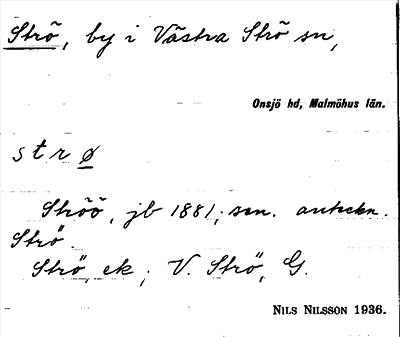 Strö, by i Västra Strö sn,
Onsjö hd, Malmöhus län.
strø
Ströö, jb 1881; sen. anteckn.
Strö.
Strö, ek; V. Strö, G.
NILS NILSSON 1936.